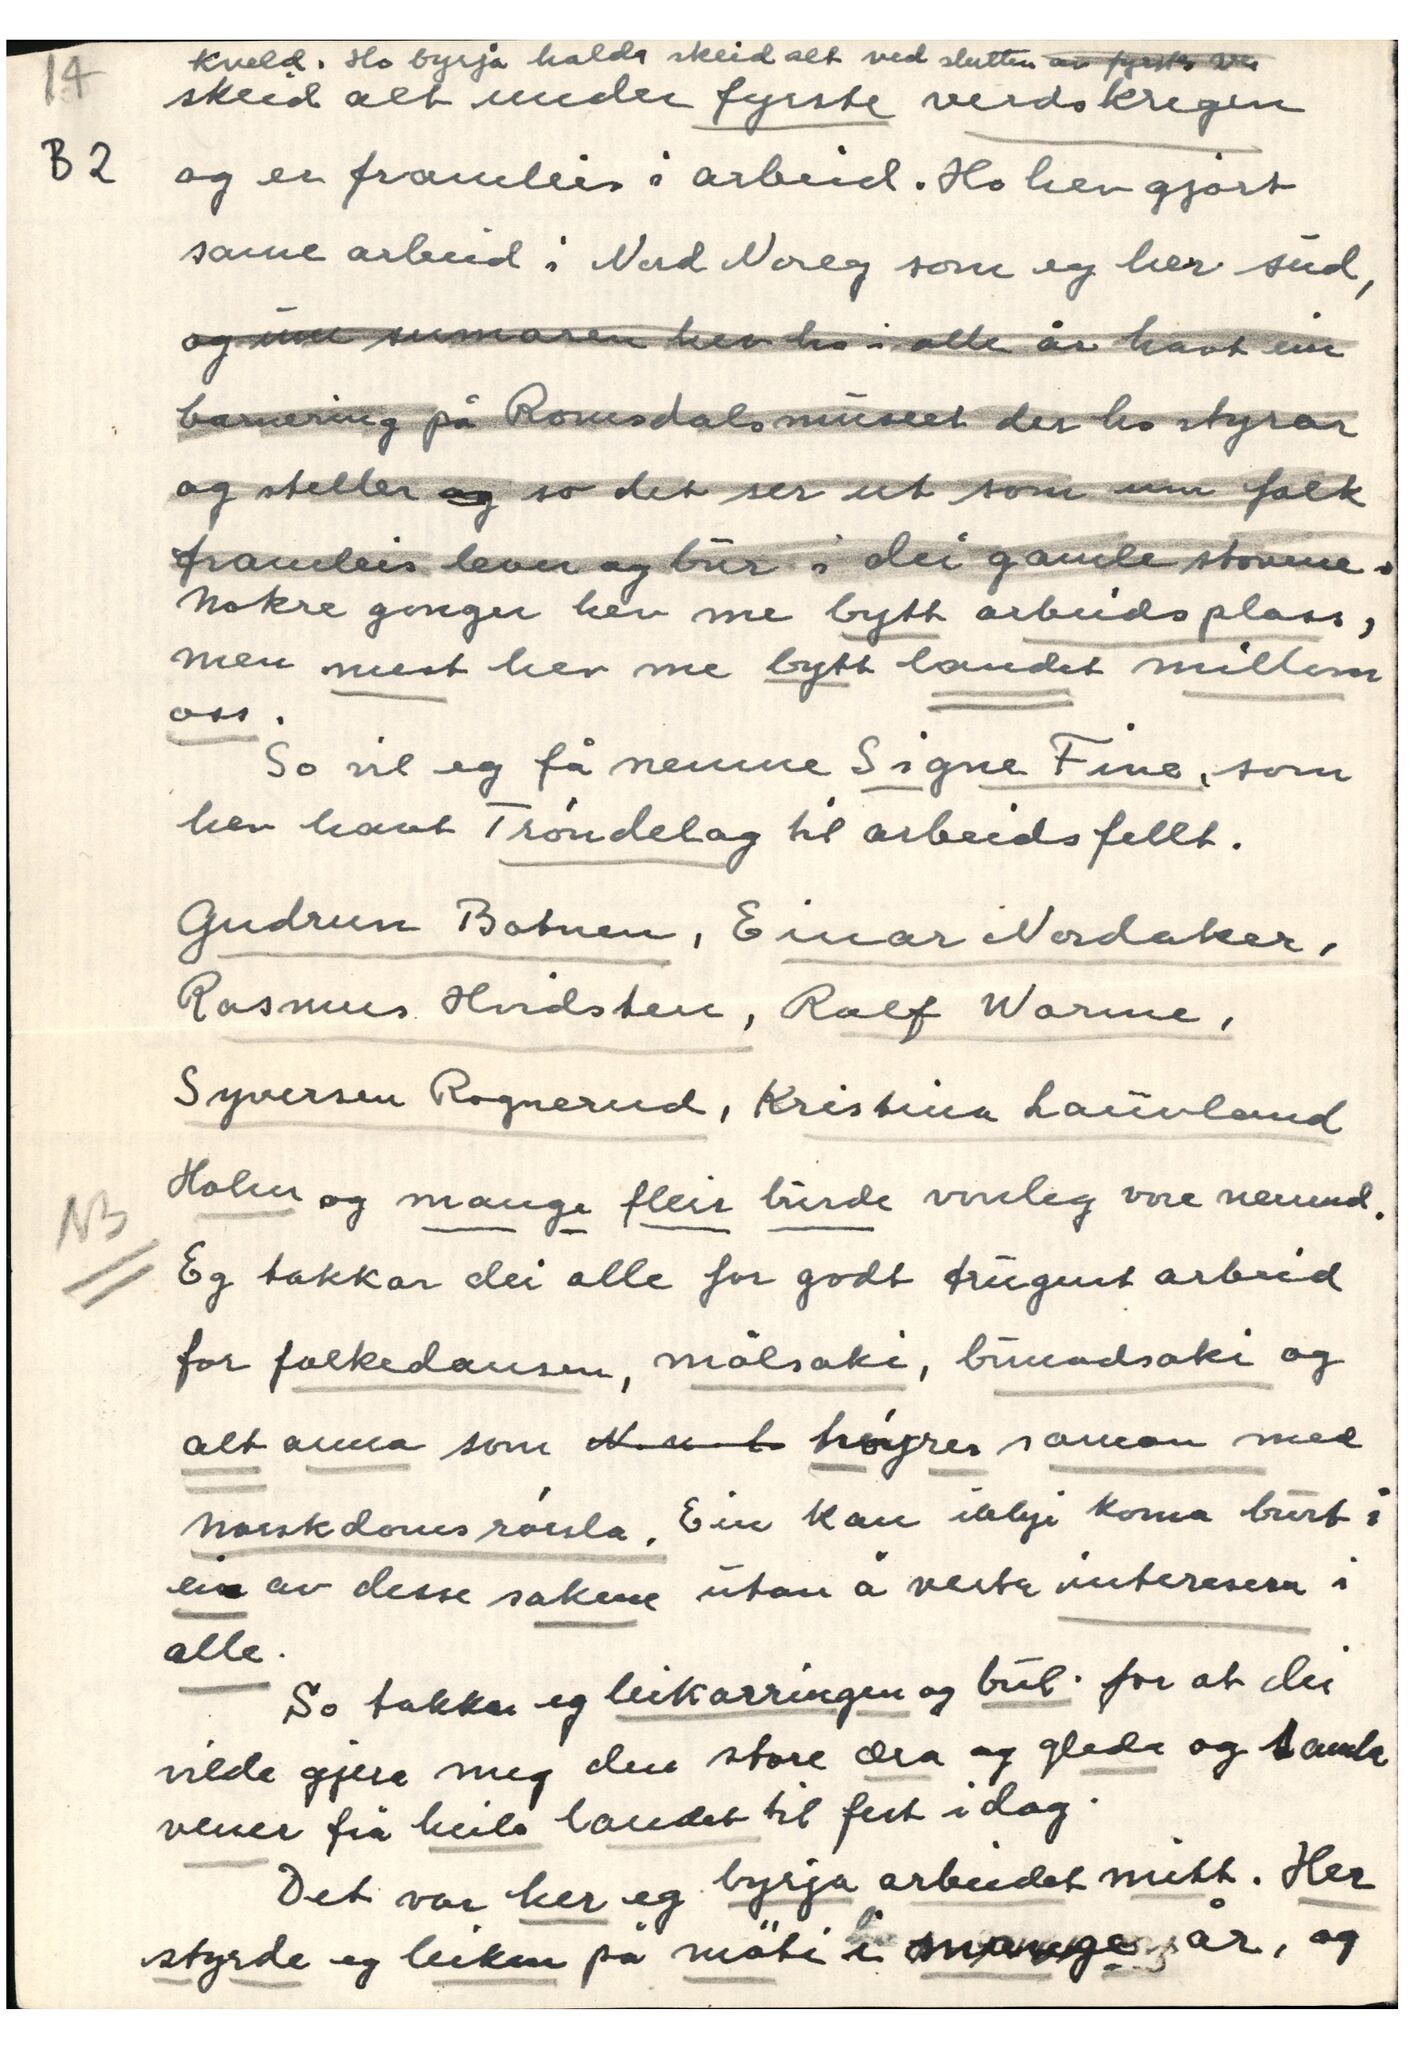 14
kveld. Ho byrja halda skeid alt ved slutten av fyrste ver
skeid alt under fyrste verdskrigen
B2
og er framleis i arbeid. Ho hev gjort
same arbeid i Nord Noreg som eg her sud,
og um sumaren hev ho i alle år havt ein
barnering på Romsdalsmuseet der ho styrar
og steller og so det ser ut som um folk
framleis lever og bur i dei gamle stovene.
Nokre gonger hev me bytt arbeidsplass,
men mest hev me bytt landet millom
oss.
So vil eg få nemne Signe Fine, som
hev havt Tróndelag til arbeidsfellt.
Gudrun Botnen, Einar Nordaker,
Rasmus Hvidsten, Ralf Warme,
Syversen Rognerud, Kristina Lauvland
Holm og mange fleir burde vorleg vore nemnd.
NB
Eg takkar dei alle for godt trugent arbeid
for folkedansen, målsaki, bunadsaki og
alt anna som høyrer saman med
norskdomsrórsla. Ein kan ikkje koma burt i
ein av desse sakene utan å verta interesera i
alle.
So takkar eg leikarringen og bul. for at dei
vilde gjera meg den store æra og gleda og samla
vener frå heile landet til fest idag.
Det var her eg byrja arbeidet mitt. Her
styrde eg leiken på möti i mange år, og